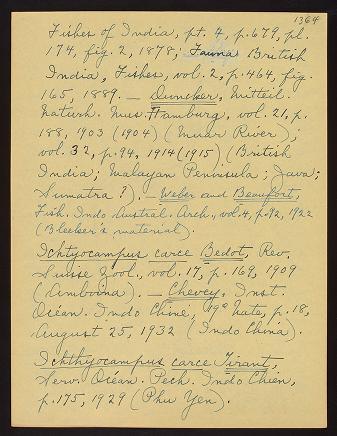 1364
Fishes of India, pt. 4, p. 679, pl.
174, fig. 2, 1878; Fauna British
India, Fishes, vol. 2, p. 464, fig.
165, 1889. — Duncker, Mitteil.
Naturh. Mus. Hamburg, vol. 21, p.
188, 1903 (1904) (Muar River);
vol. 32, p. 94, 1914 (1915) (British
India; Malayan Peninsula; Java;
Sumatra ?). — Weber and Beaufort,
Fish. Indo Austral. Arch., vol. 4, p. 92, 1922
(Bleeker's material).
Ichtyocampus carce Bedot, Rev.
Suisse Zool., vol. 17, p. 169, 1909
(Amboina). — Chevey, Inst.
Océan. Indo Chine, 19e Note, p. 18,
August 25, 1932 (Indo China).
Ichthyocampus carce Tirant,
Serv. Océan. Pech. Indo Chien,
p. 175, 1929 (Phu Yen).